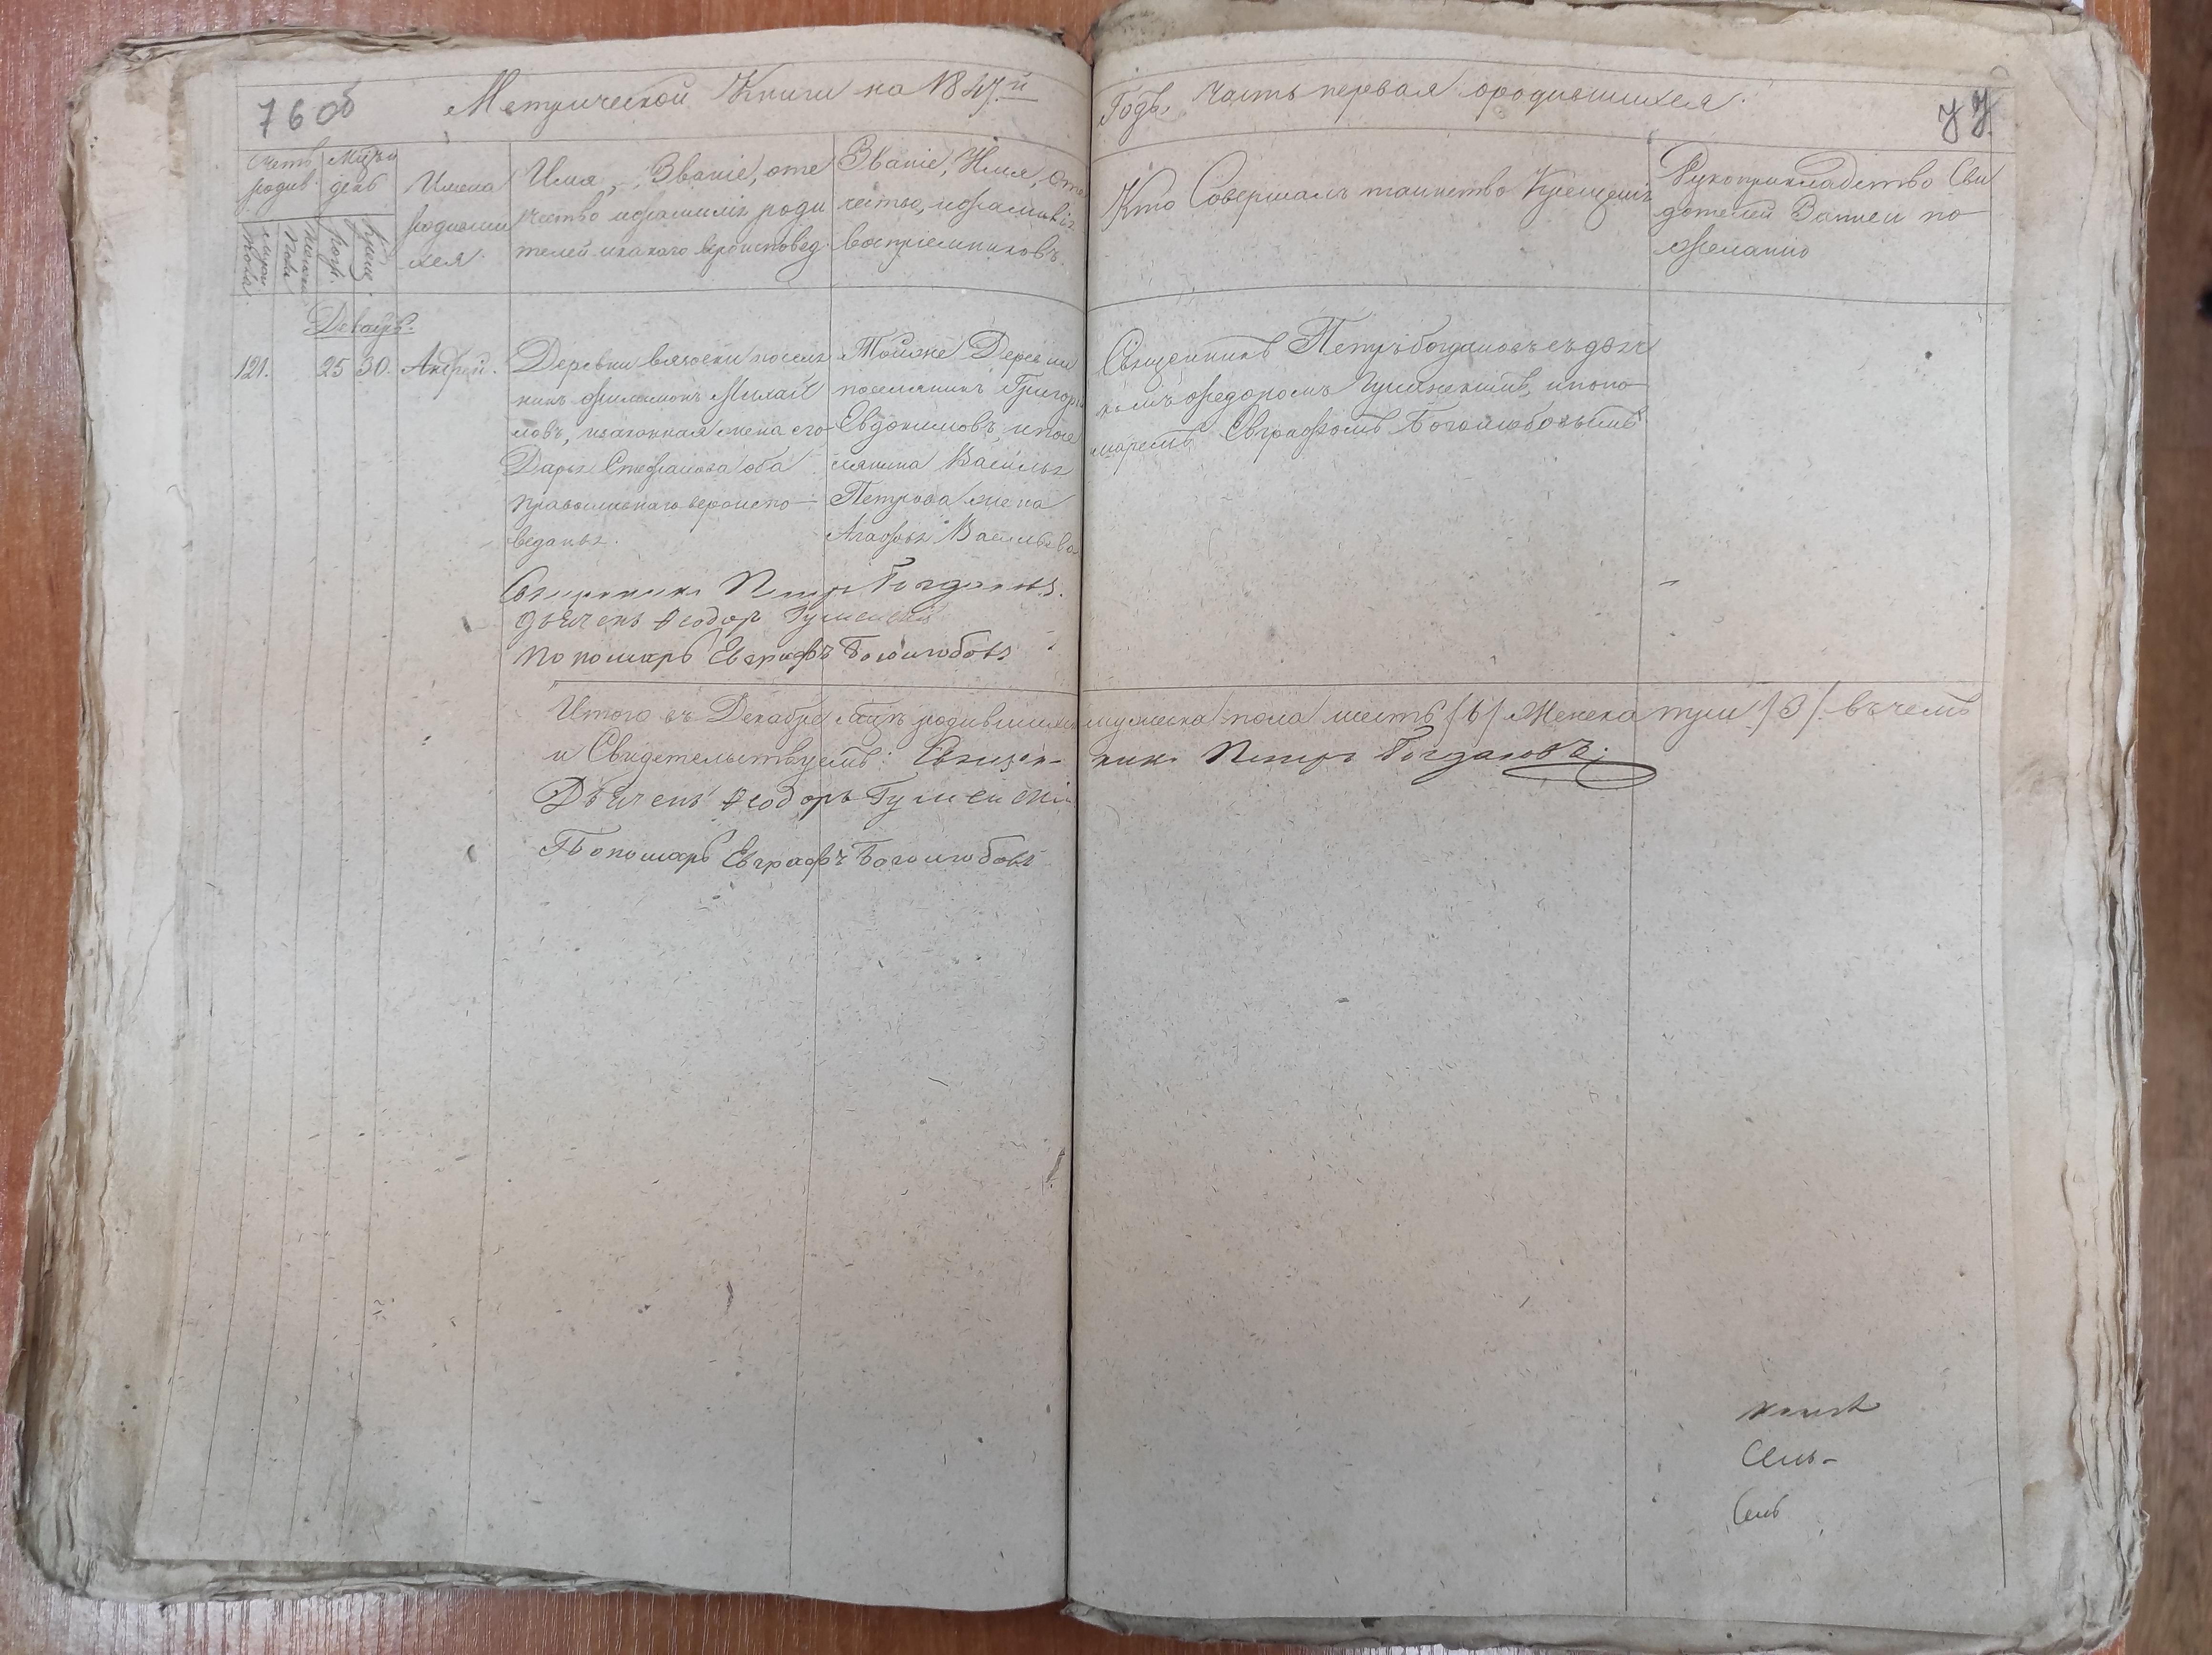 76 об
Метрической Книги на 1847.й
Годъ. Часть первая ородившихся.
77.
Счетъ родив.
Мцъ и день
Имена родивши хся
Имя, Званіе, оте
чество ифамилія роди
телей икакого вероисповед.
Званіе, Имя, оте
чество, ифамилія
воспріемниковъ.
Кто Совершалъ таинство Крещенія
Рукоприкладство Сви
дѣтелей Записи по
желанію
Декабрь.
121.
25
30.
Андрей.
Деревни посели
нинъ Филимонъ Михай
ловъ, изаконная жена его
Дарья Стефанова оба
православнаго вероиспо-
веданья.
Тойже Деревни
поселянинъ Григорій
Евдокимовъ, ипосе
лянина Василья
Петрова жена
Агафья Васильева
Священникъ Петръ Богдановъ съ дьяч
комъ Федоромъ Гуменскимъ, ипоно
маремъ Евграфомъ Боголюбовымъ
Священникъ Петръ Богдановъ.
Дьячекъ Ѳеодоръ Гуменскій
Пономарь Евграфъ Боголюбовъ
Итого въ Декабре Мцѣ родившихся мужеска пола шесть /6/ Женска три /3/. въ чемъ
и Свидетельствуемъ: Священникъ Петръ Богдановъ;
Дьячекъ Ѳеодоръ Гуменскій
Пономарь Евграфъ Боголюбовъ